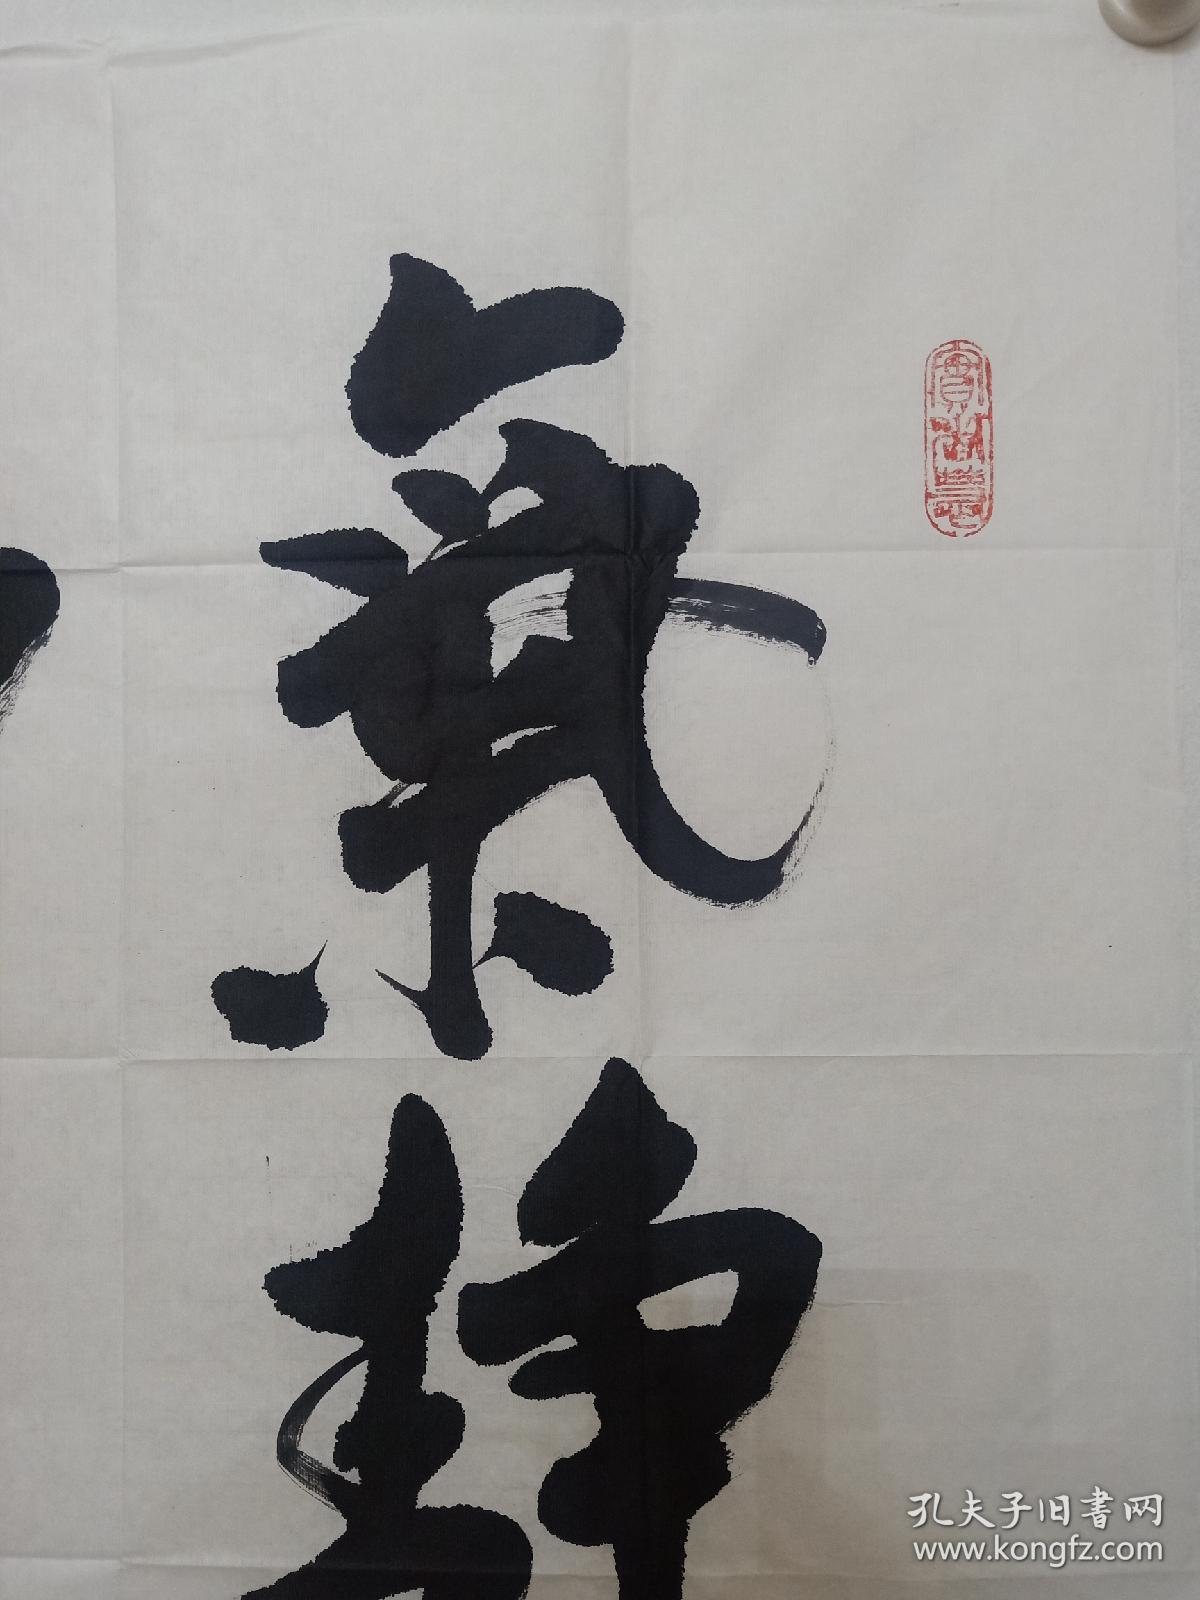 氣
靜
孔夫子旧书网
www.kongfz.com